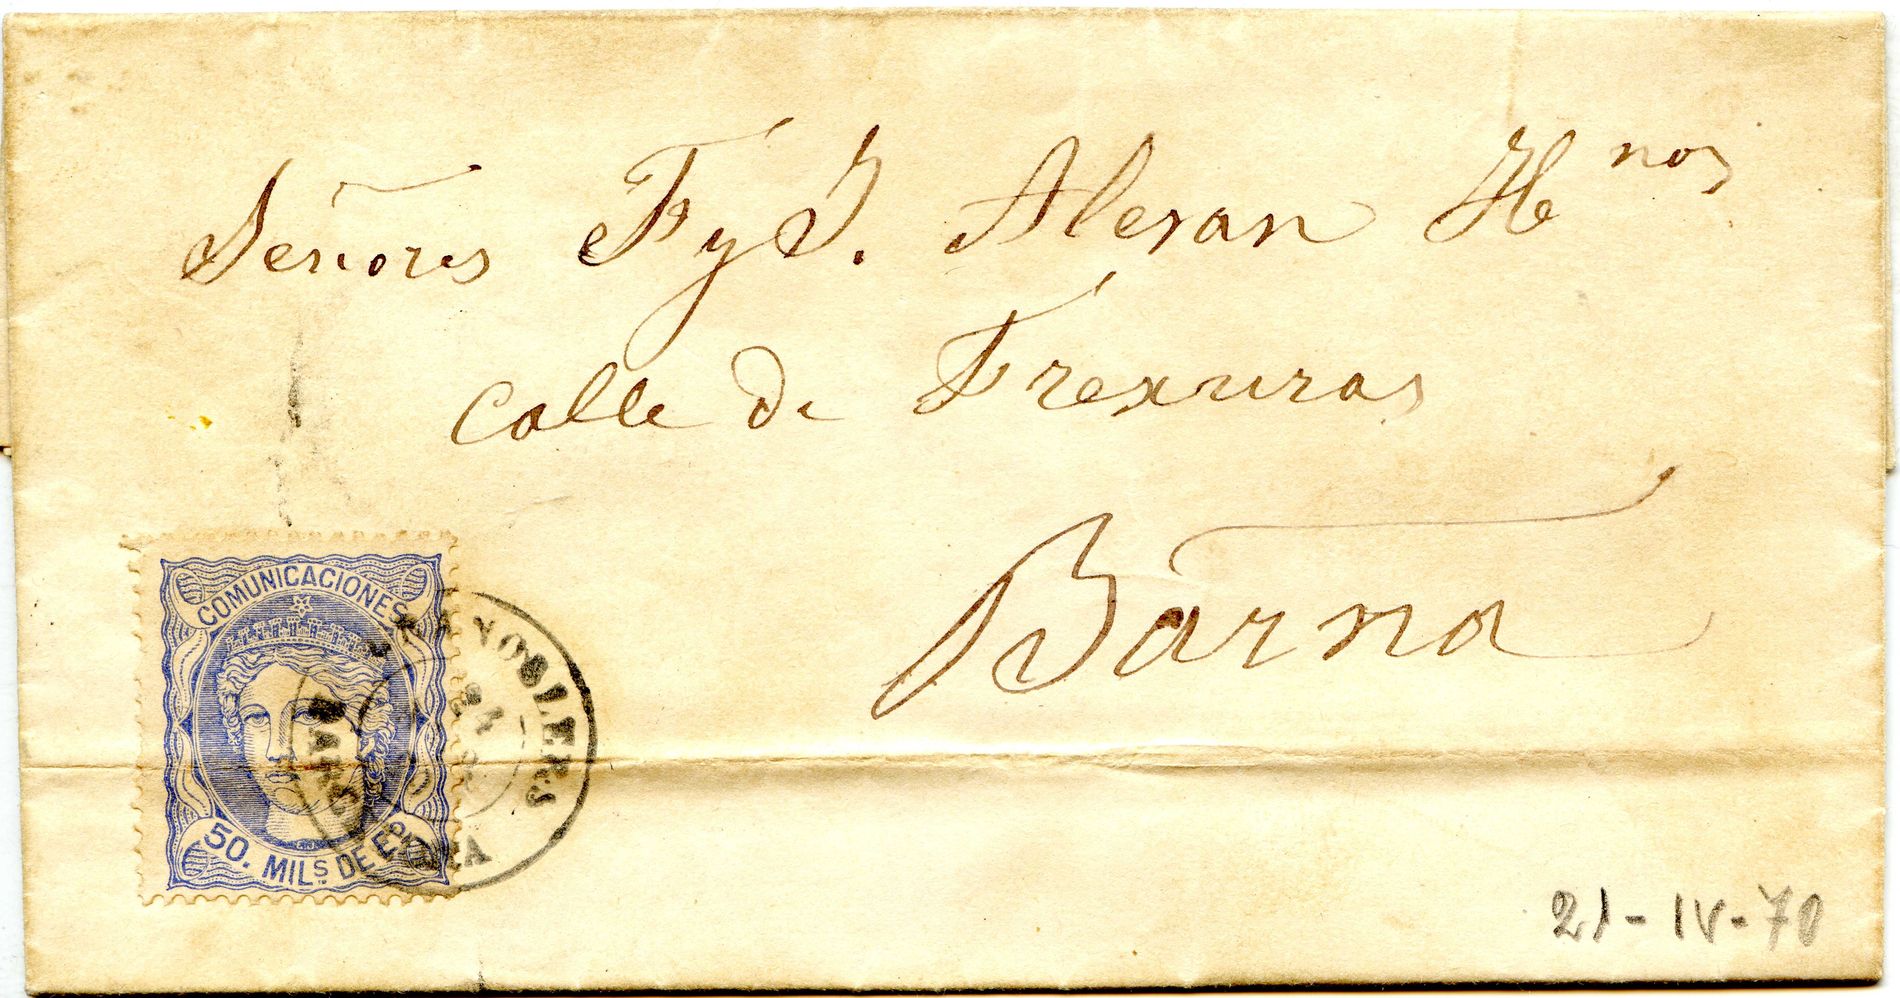 Señores F y J. Alexan H nos
Calle de Frexuras
Barna
COMUNICACIONES
50. MILS DE ES
21-IV-70